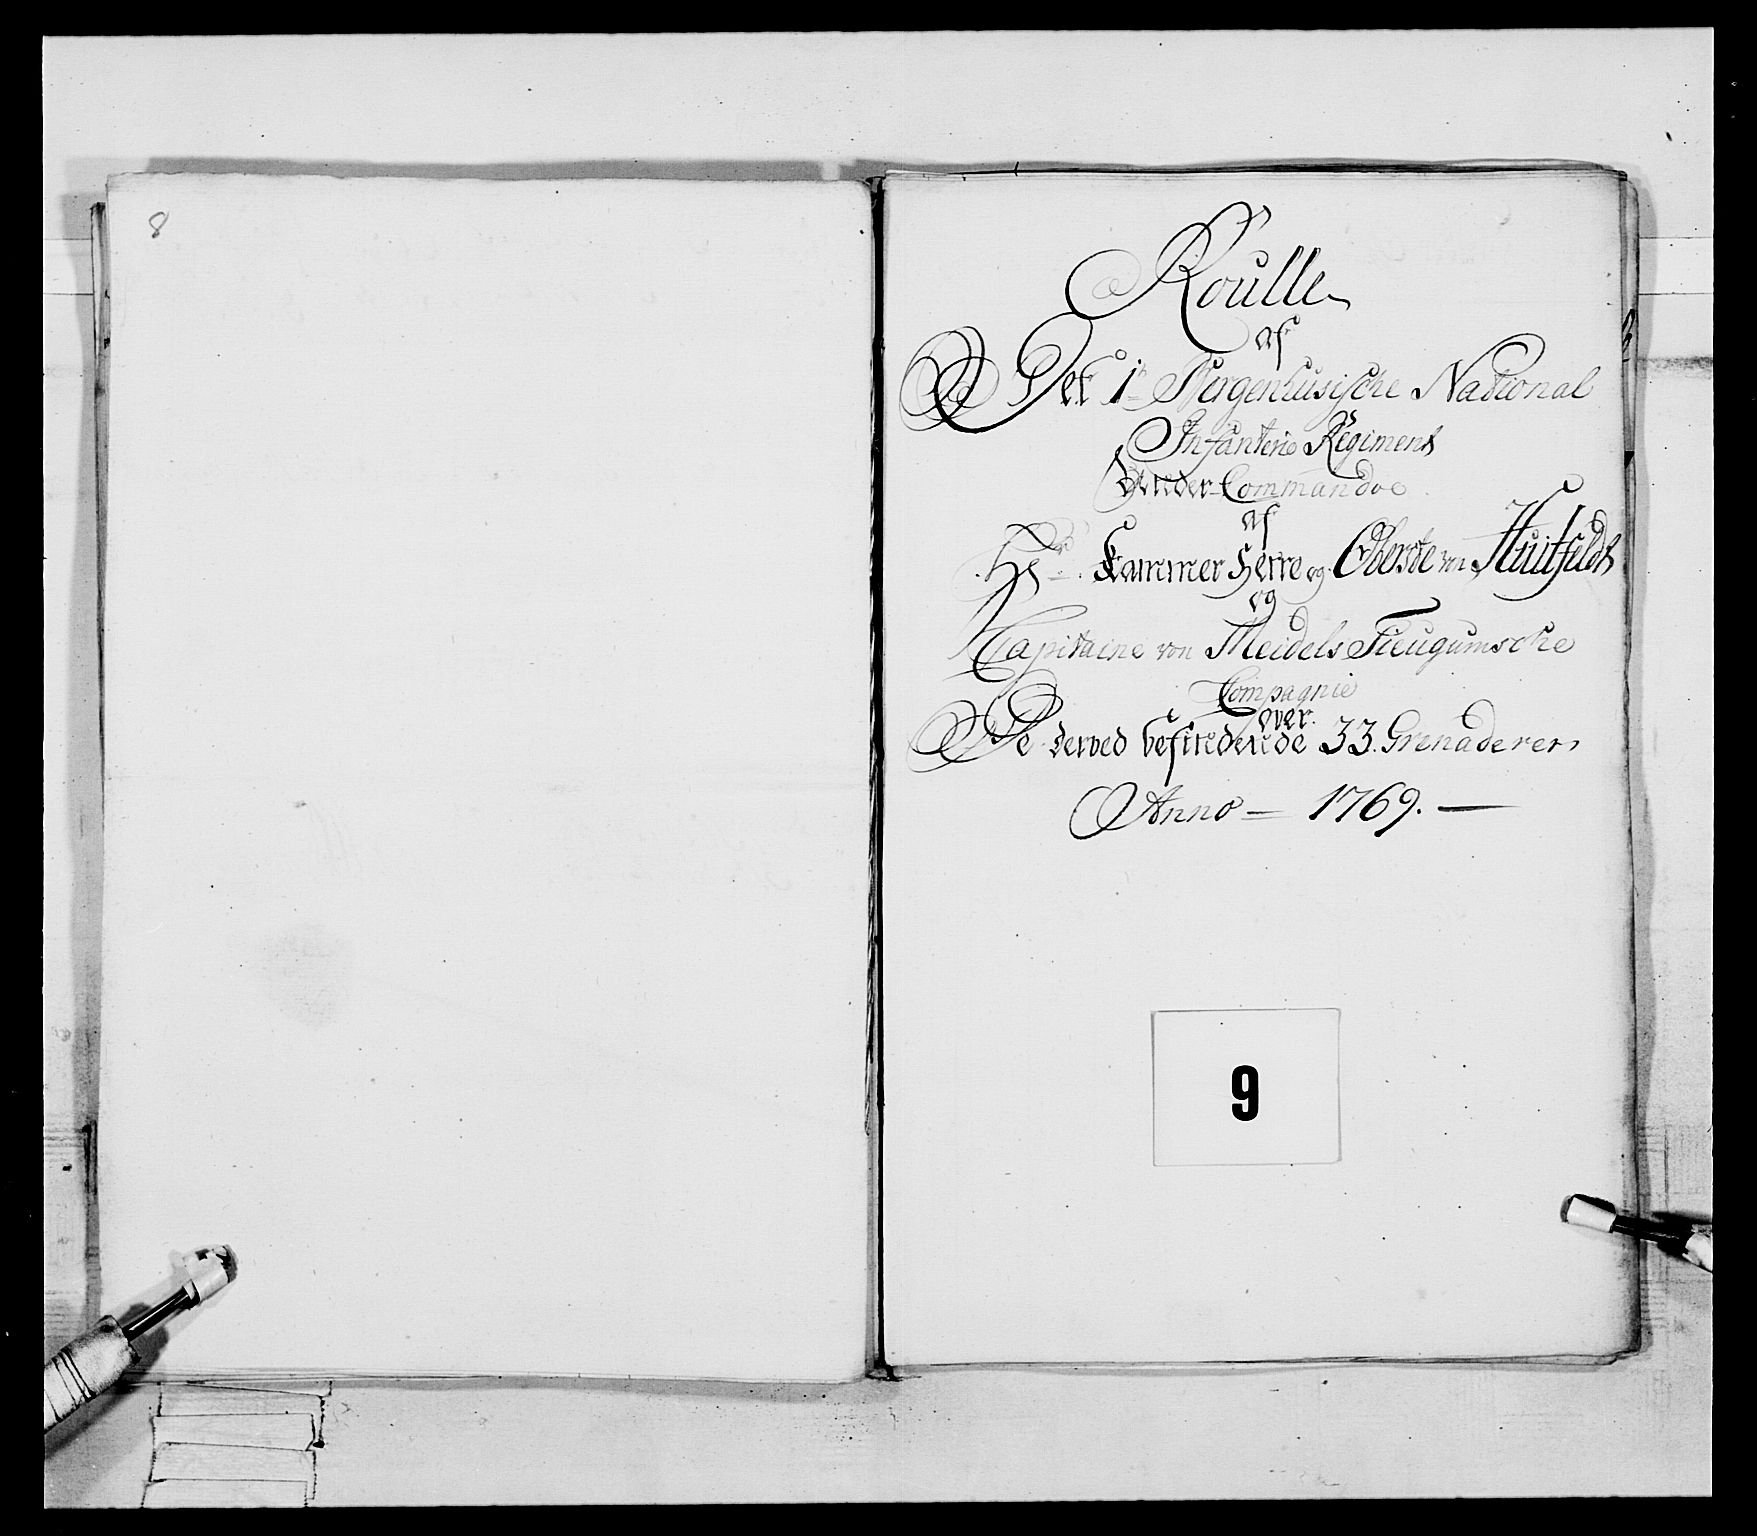 8
Roulle
af
Det 1te Bergenhusische National
Infanterie Regiment
Under Commando
af
Hr Kammer Herre og Oberste von Huitfeldt
og
Capitaine von Meidels Fieugumsche
Compagnie
over
De derved befindende 33. Grenaderer
Anno — 1769. —
9